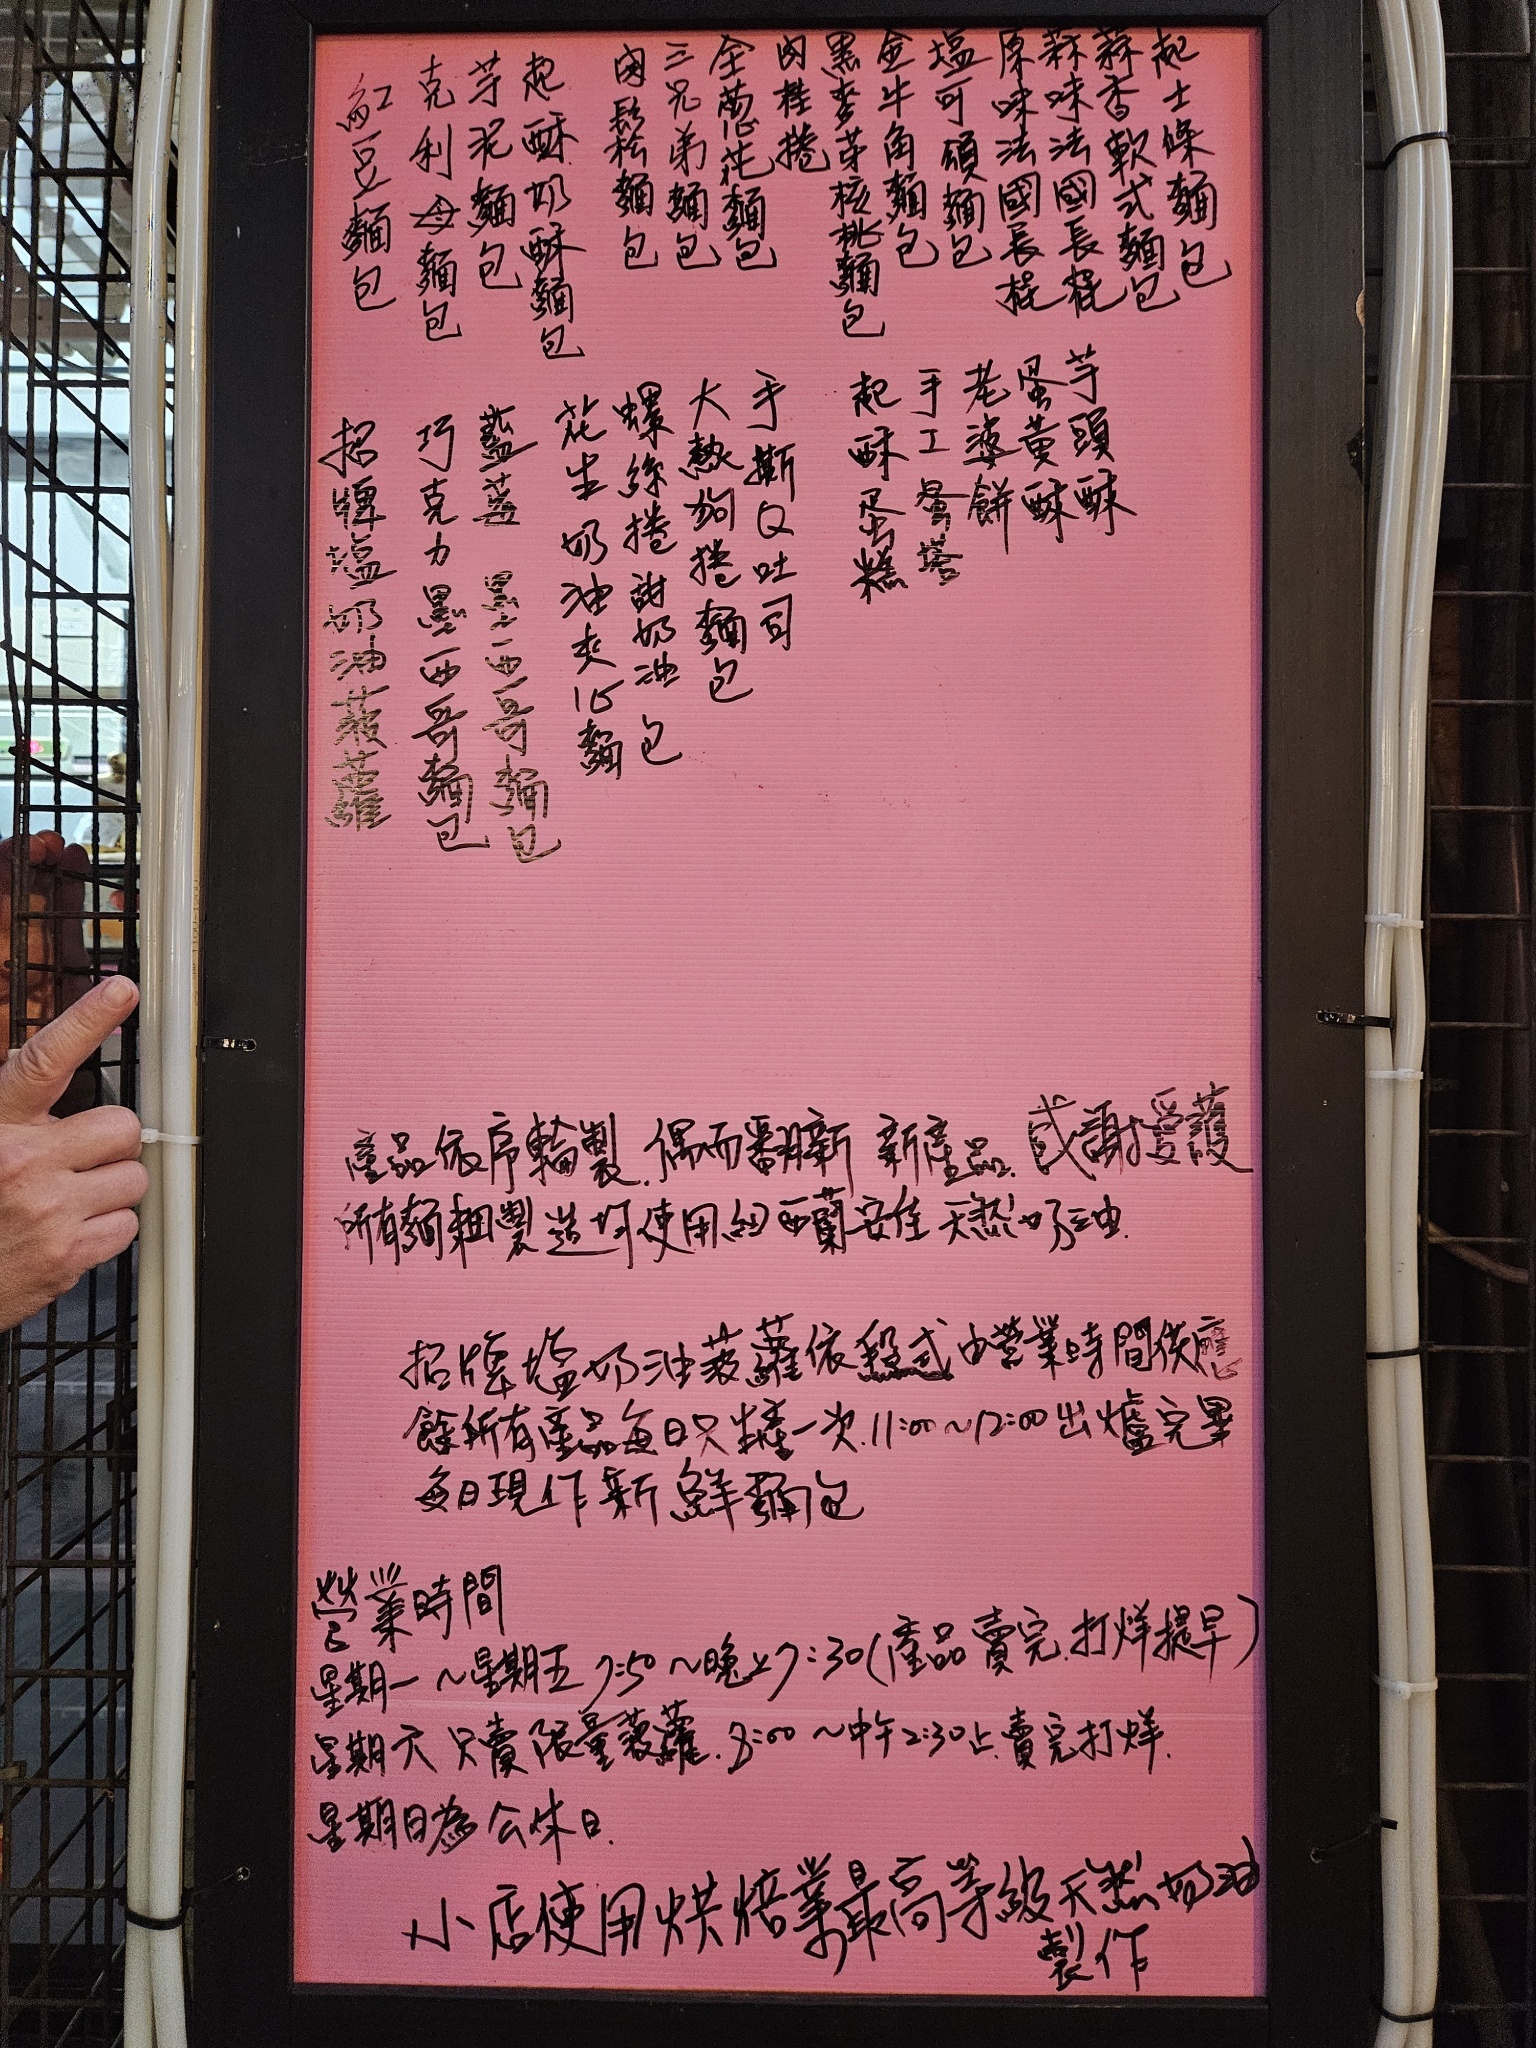 起士條麵包
蒜香軟式麵包
蒜味法國長棍
原味法國長棍
塩可頌麵包
金牛角麵包
黑麥芽核桃麵包
肉桂捲
全蔥花麵包
三兄弟麵包
肉鬆麵包
起酥奶酥麵包
芋泥麵包
克利母麵包
紅豆麵包
芋頭酥
蛋黃酥
老婆餅
手工蛋塔
起酥蛋糕
手撕Q吐司
大熱狗捲麵包
螺絲捲謝奶油包
花生奶油夾心麵
藍莓墨西哥麵包
巧克力墨西哥麵包
招牌塩奶油菠蘿
產品依序輪製.偶而翻新 新產品.感謝愛護
所有麵糰製造均使用紐西蘭安佳天然奶油.
招牌塩奶油菠蘿依段式由營業時間供應
餘所有產品每日只烤一次.11:00~12:00出爐完畢
每日現作新鮮麵包
營業時間
星期一~星期五7:50~晚上7:30(產品賣完.打烊提早)
星期六只賣限量菠蘿.8:00~中午2:30止.賣完打烊.
星期日為公休日.
小店使用烘焙業最高等級天然奶油
製作